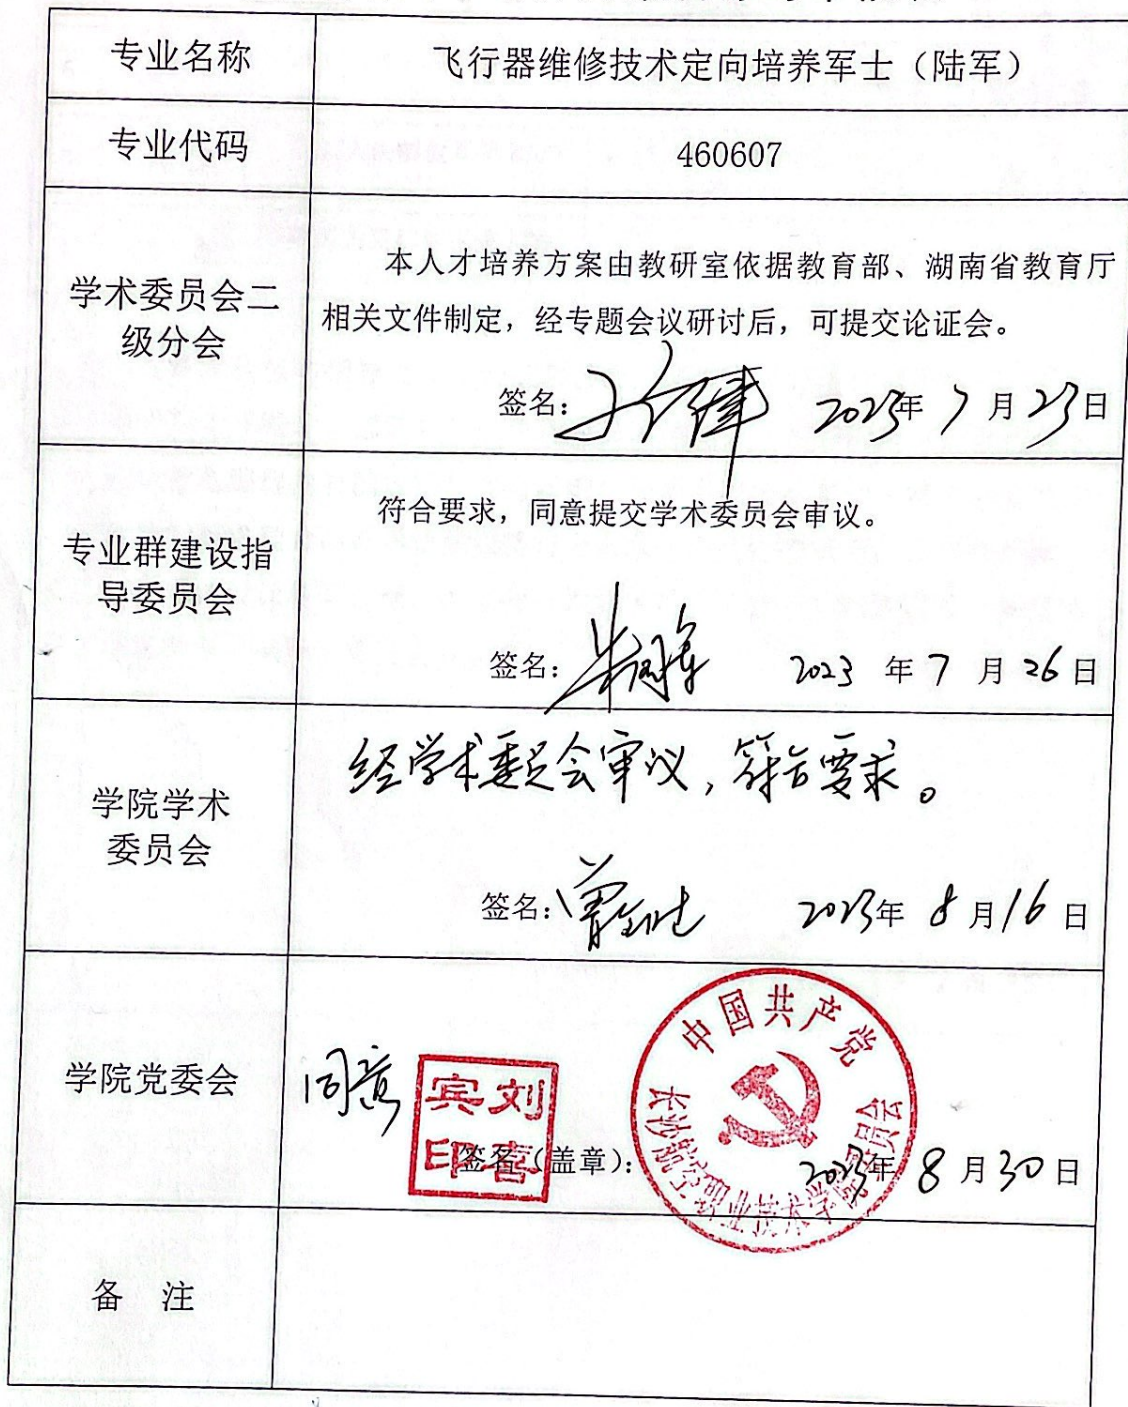 专业名称
飞行器维修技术定向培养军士（陆军）
专业代码
460607
学术委员会二
级分会
本人才培养方案由教研室依据教育部、湖南省教育厅
相关文件制定，经专题会议研讨后，可提交论证会。
签名： 2023年 7 月 23日
专业群建设指
导委员会
符合要求，同意提交学术委员会审议。
签名： 2023 年 7 月 26 日
学院学术
委员会
经学术委员会审议，符合要求。
签名： 2023年 8 月 16 日
学院党委会
同意
刘喜宾印
中国共产党
长沙航空职业技术学院委员会
签名（盖章）： 2023年 8 月 30 日
备 注